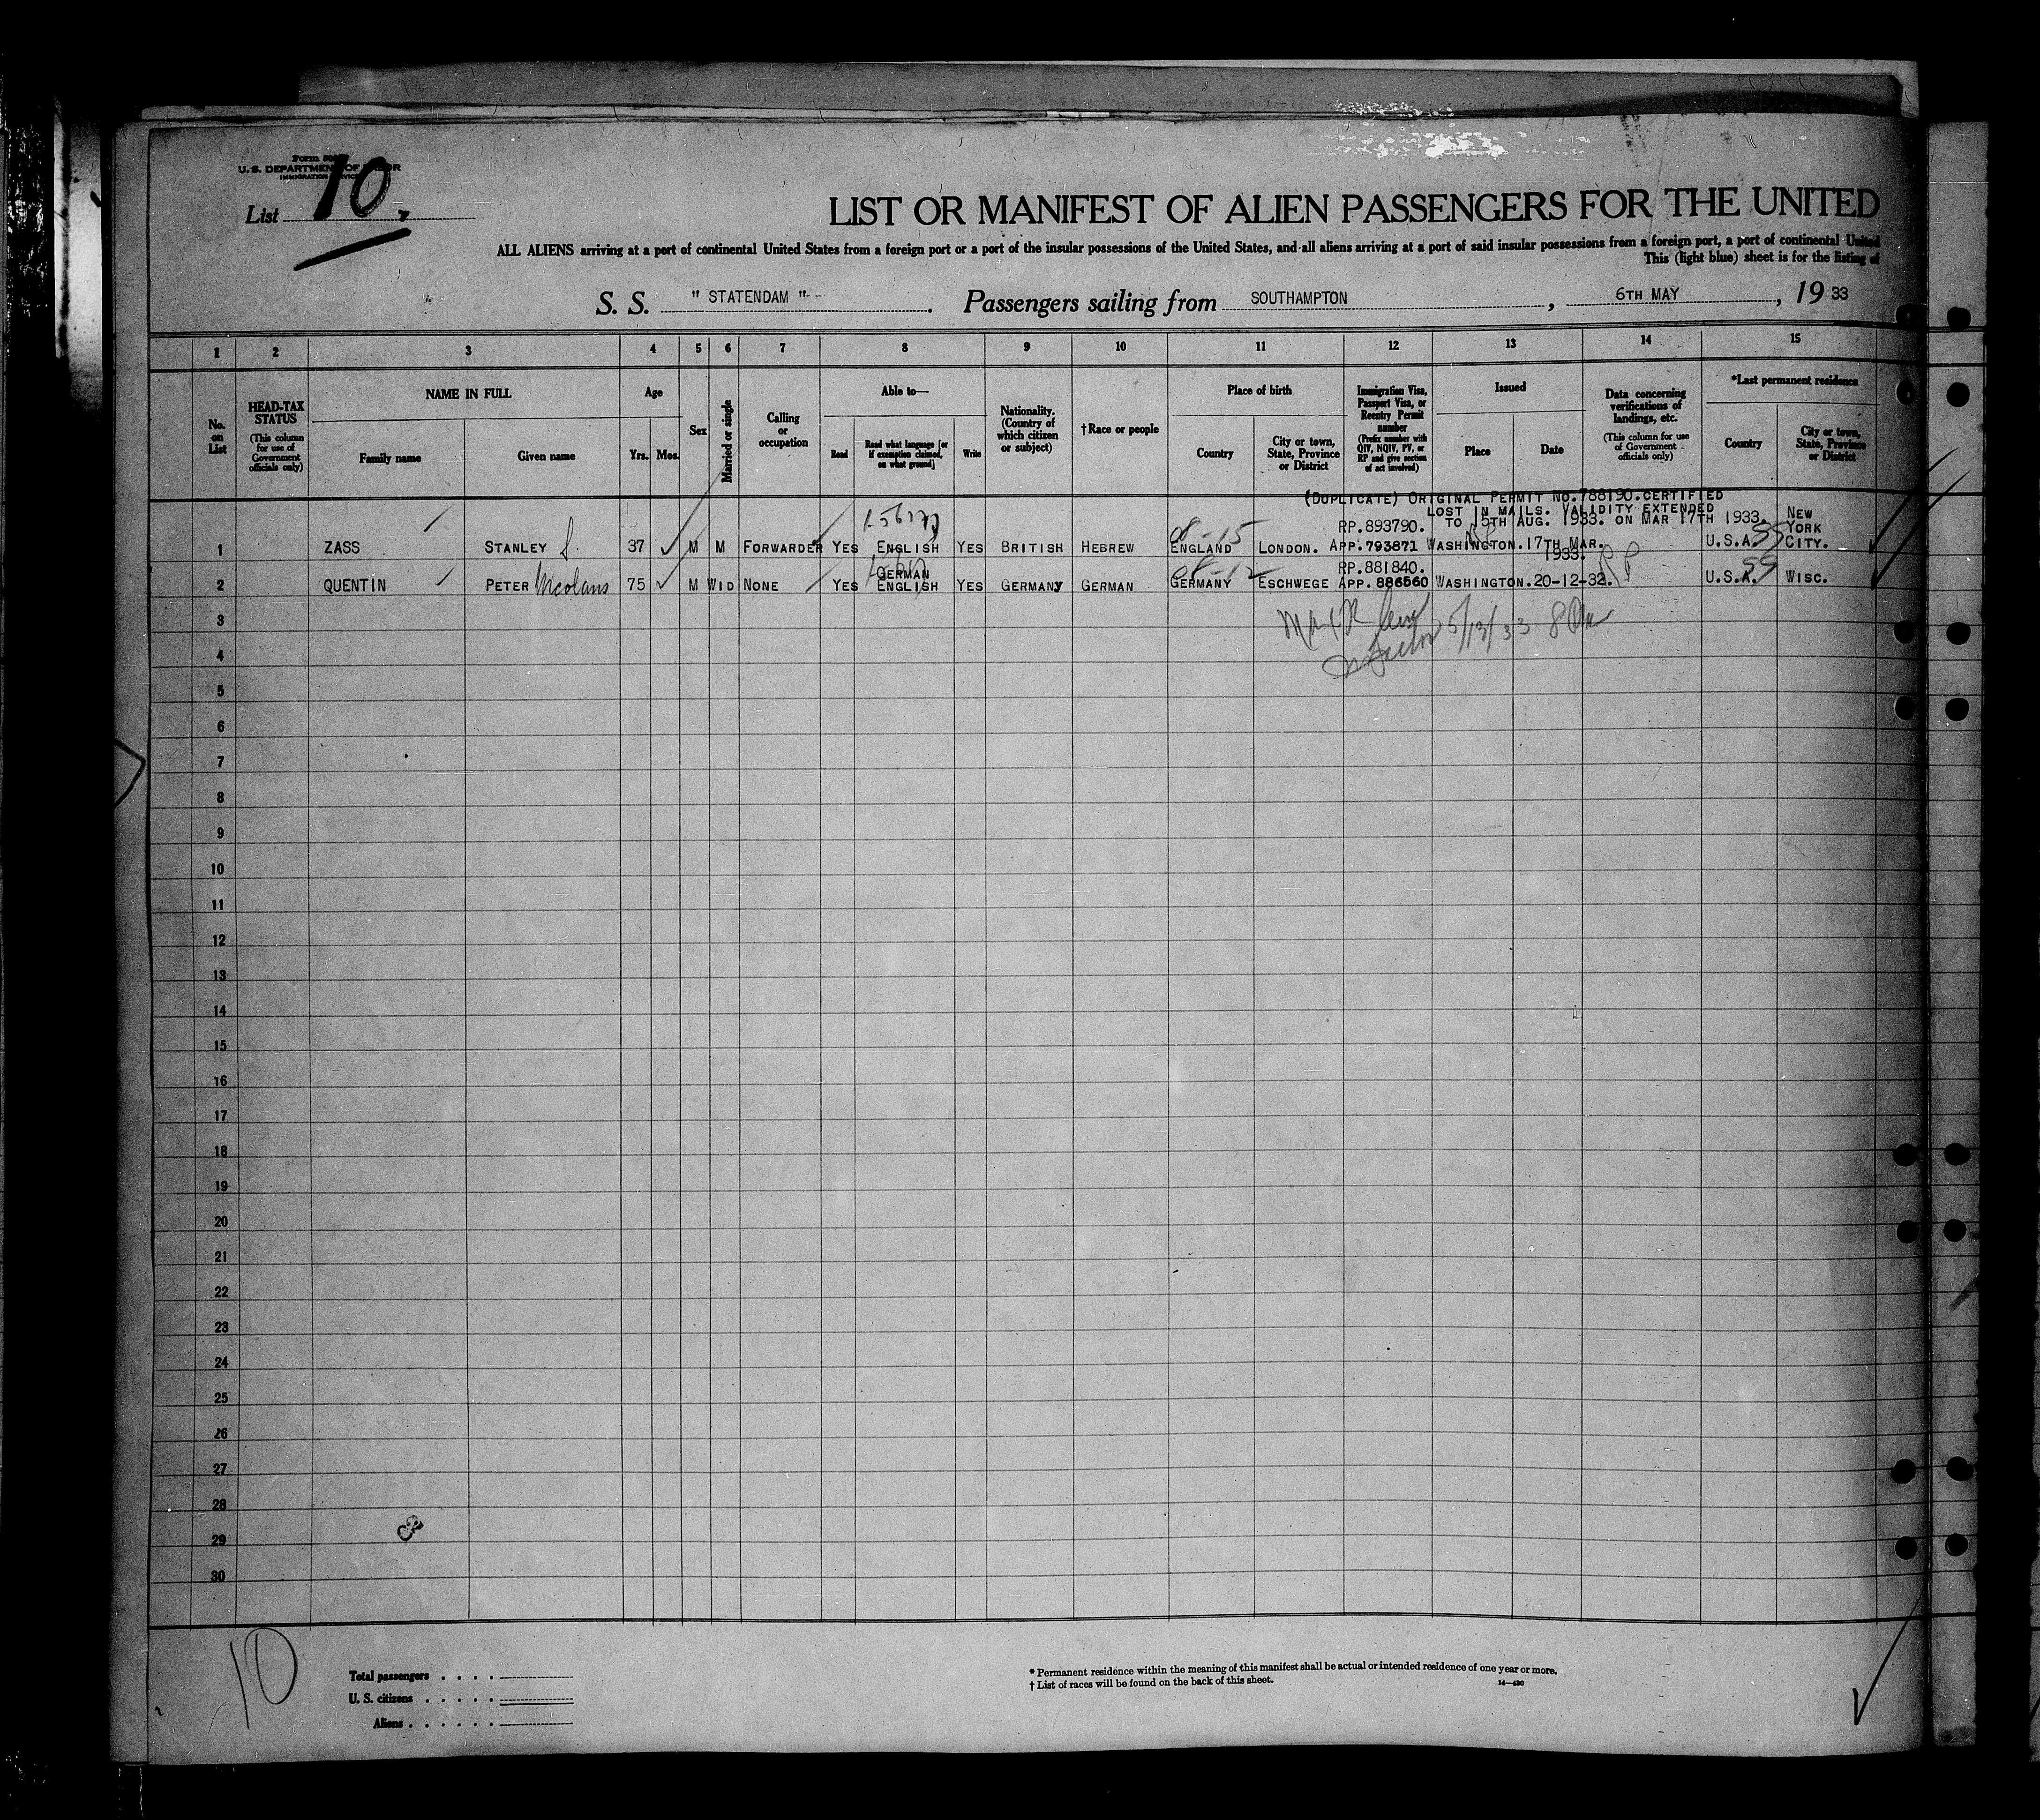 U. S. DEPARTMENT OF
List 10.
LIST OR MANIFEST OF ALIEN PASSENGERS FOR THE UNITED
ALL ALIENS arriving at a port of continental United States from a foreign port or a port of the insular possessions of the United States, and all aliens arriving at a port of said insular possessions from a foreign port, a port of continental United
This (light blue) sheet is for the listing of
S. S. " STATENDAM " . Passengers sailing from SOUTHAMPTON , 6TH MAY , 19 33
1 2 3 4 5 6 7 8 9 10 11 12 13 14 15
No. on List
HEAD-TAX STATUS
(This column for use of Government officials only)
NAME IN FULL
Family name
Given name
Age
Yrs. Mos.
Sex
Married or single
Calling or occupation
Able to—
Read
Read what language [or if exemption claimed, on what ground]
Write
Nationality. (Country of which citizen or subject)
†Race or people
Place of birth
Country
City or town, State, Province or District
Immigration Visa, Passport Visa, or Reentry Permit number
(Prefix number with QIV, NQIV, PV, or RP and give section of act involved)
Issued
Place
Date
Data concerning verifications of landings, etc.
(This column for use of Government officials only)
*Last permanent residence
Country
City or town, State, Province or District
(DUPLICATE) ORIGINAL PERMIT NO.788190.CERTIFIED
LOST IN MAILS. VALIDITY EXTENDED
RP.893790. TO 15TH AUG. 1933. ON MAR 17TH 1933. NEW YORK
1 ZASS STANLEY 37 M M FORWARDER YES ENGLISH YES BRITISH HEBREW ENGLAND LONDON. APP.793871 WASHINGTON.17TH MAR. U.S.A. CITY.
1933.
GERMAN RP.881840.
2 QUENTIN PETER 75 M WID NONE YES ENGLISH YES GERMANY GERMAN GERMANY ESCHWEGE APP.886560 WASHINGTON.20-12-32. U.S.A. WISC.
3 5/13/33
4
5
6
7
8
9
10
11
12
13
14
15
16
17
18
19
20
21
22
23
24
25
26
27
28
29
30
10
Total passengers
U. S. citizens
Aliens
* Permanent residence within the meaning of this manifest shall be actual or intended residence of one year or more.
† List of races will be found on the back of this sheet.
14—430